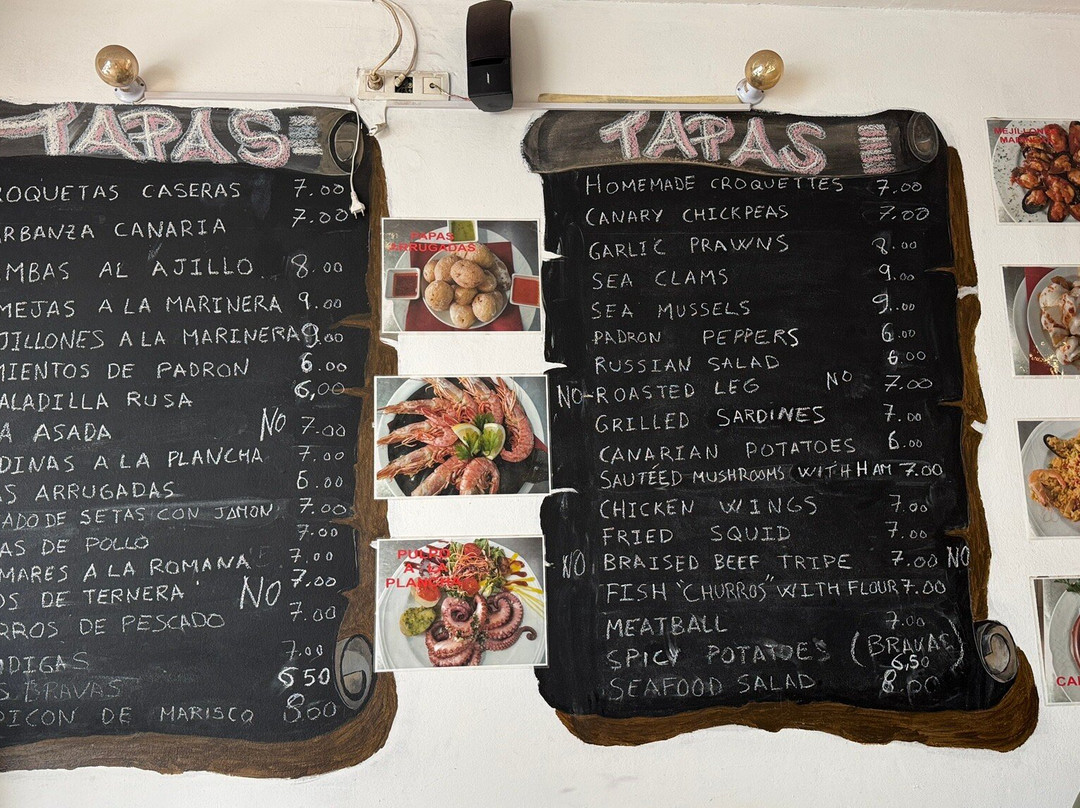 TAPAS
ROQUETAS CASERAS 7.00
ARBANZA CANARIA 7.00
MBAS AL AJILLO 8.00
MEJAS A LA MARINERA 9.00
JILLONES A LA MARINERA 9.00
MIENTOS DE PADRON 6.00
ALADILLA RUSA 6,00
A ASADA NO 7.00
DINAS A LA PLANCHA 7.00
AS ARRUGADAS 6.00
ADO DE SETAS CON JAMON 7.00
AS DE POLLO 7.00
MARES A LA ROMANA 7.00
OS DE TERNERA NO 7.00
RROS DE PESCADO 7.00
DIGAS 7.00
S BRAVAS 6 50
PICON DE MARISCO 8.00
PAPAS
ARRUGADAS
PULPO
A LA
PLANCHA
TAPAS
HOMEMADE CROQUETTES 7.00
CANARY CHICKPEAS 7.00
GARLIC PRAWNS 8.00
SEA CLAMS 9.00
SEA MUSSELS 9.00
PADRON PEPPERS 6.00
RUSSIAN SALAD 6.00
NO-ROASTED LEG NO 7.00
GRILLED SARDINES 7.00
CANARIAN POTATOES 6.00
SAUTÉED MUSHROOMS WITH HAM 7.00
CHICKEN WINGS 7.00
FRIED SQUID 7.00
NO BRAISED BEEF TRIPE 7.00 NO
FISH "CHURROS" WITH FLOUR 7.00
MEATBALL 7.00
SPICY POTATOES (BRAVAS) 6,50
SEAFOOD SALAD 8.00
MEJILLON
MA
CA